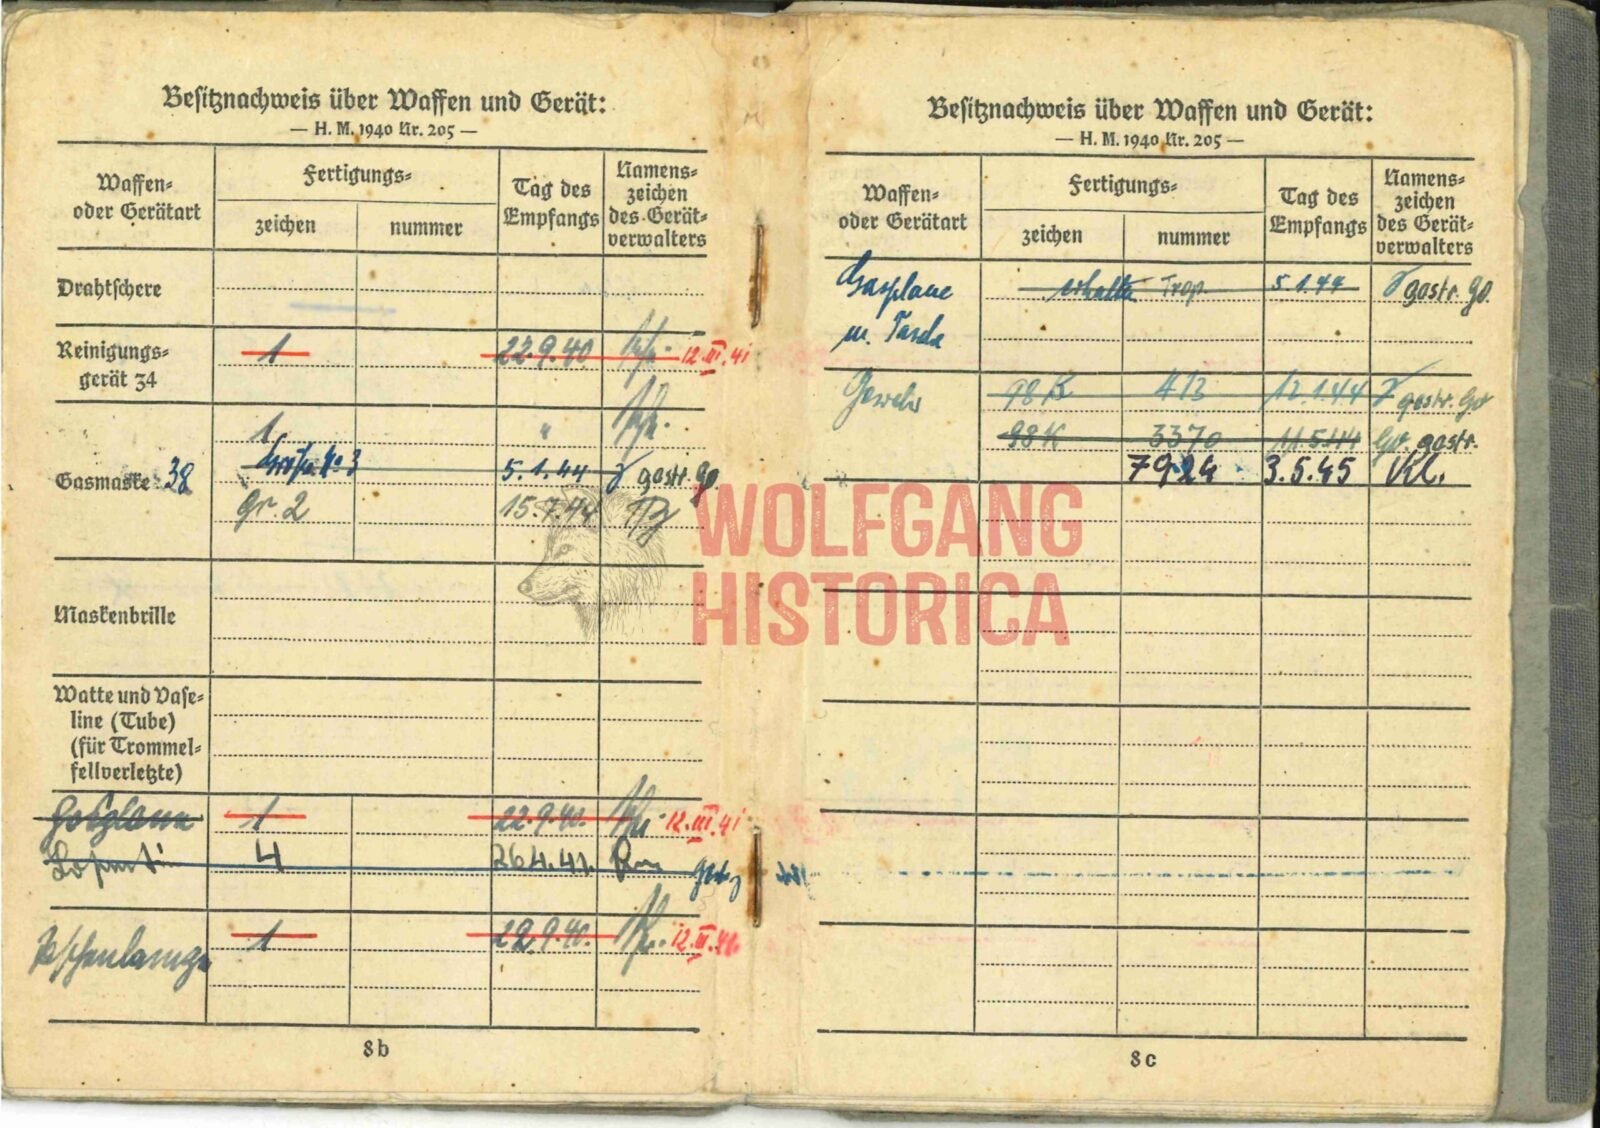 Besitznachweis über Waffen und Gerät:
— H. M. 1940 Nr. 205 —
Waffen-
oder Gerätart
Fertigungs-
zeichen
nummer
Tag des
Empfangs
Namens-
zeichen
des Gerät-
verwalters
Drahtschere
Reinigungs-
gerät 34
1
22.9.40
12.III.41
Gasmaske 38
1
"
Größe No 3
5.1.44
gestr. Go
gr. 2
15.7.44
Maskenbrille
Watte und Vase-
line (Tube)
(für Trommel-
fellverletzte)
Gasplane
1
22.9.40.
12.III.41
4
26.4.41.
Taschenlampe
1
22.9.40.
12.III.41
8b
Besitznachweis über Waffen und Gerät:
— H. M. 1940 Nr. 205 —
Waffen-
oder Gerätart
Fertigungs-
zeichen
nummer
Tag des
Empfangs
Namens-
zeichen
des Gerät-
verwalters
Gasplane
erhalten Trop.
5.1.44
gestr. Go.
m. Tasche
Gewehr
98 K
413
12.1.44
gestr. Go
98 K
3370
11.5.44
Go. gestr.
7924
3.5.45
Kl.
8c
WOLFGANG
HISTORICA